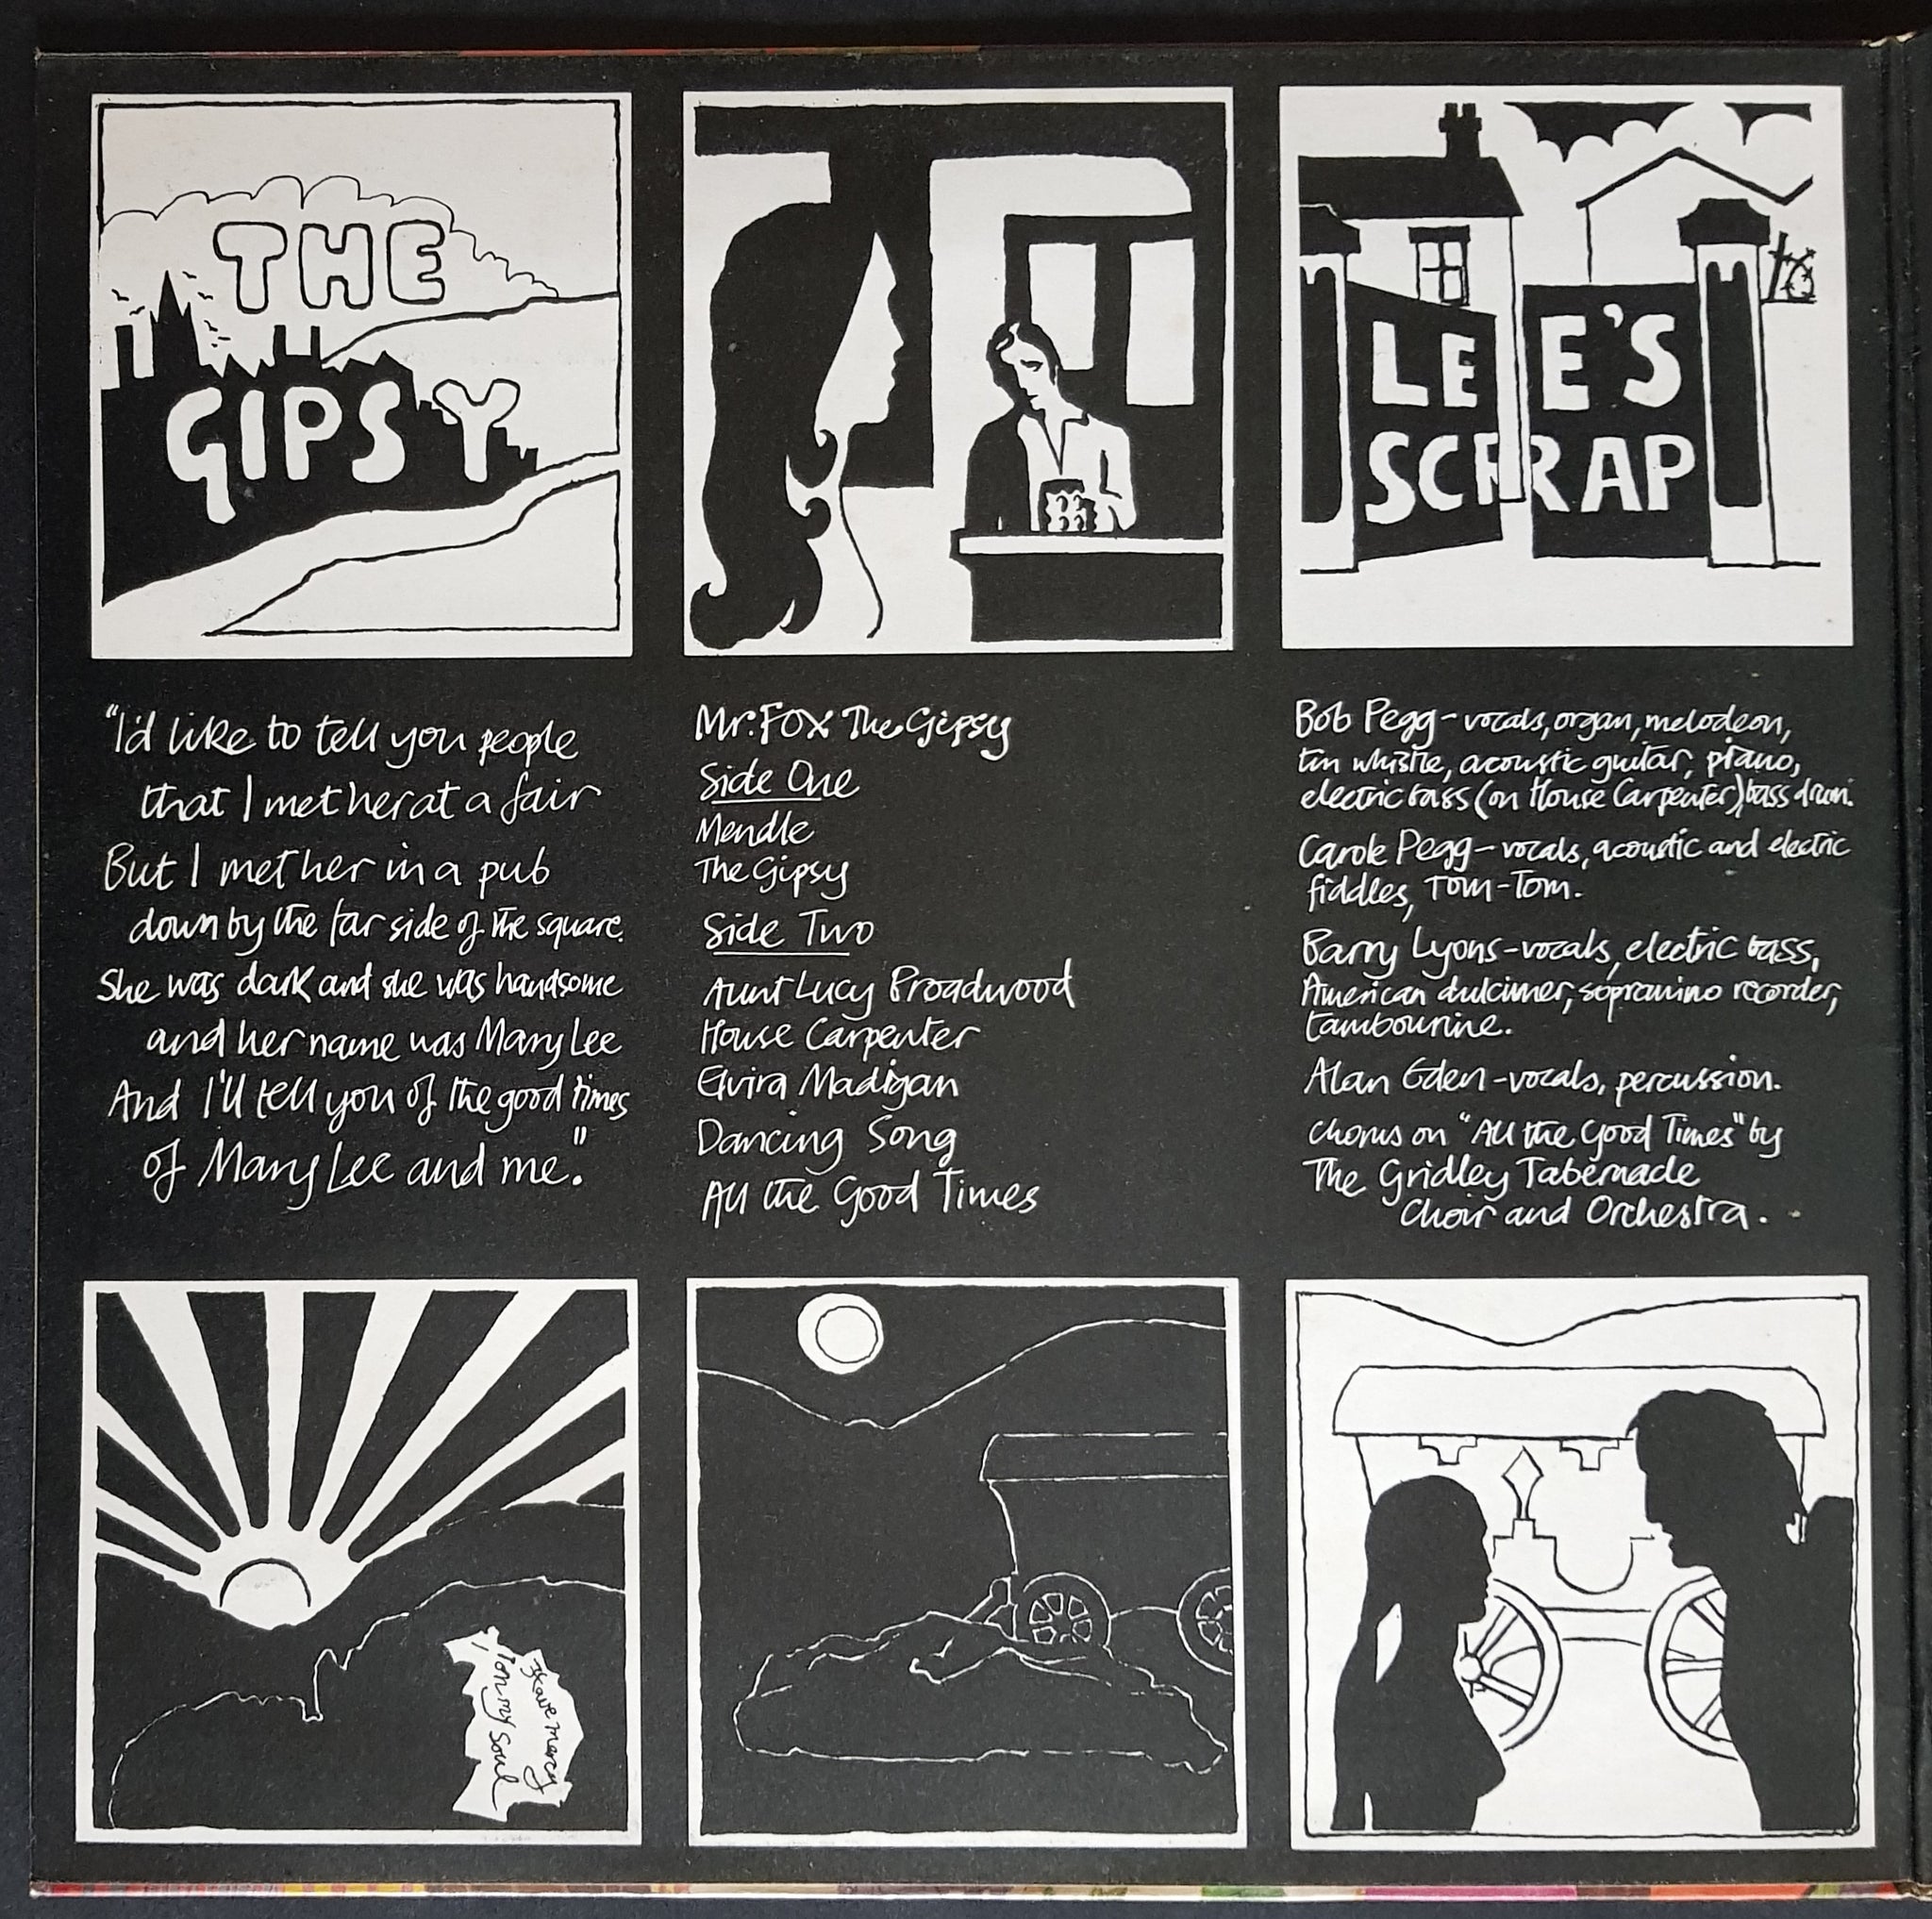 THE
GIPSY
LEE'S
SCRAP
"I'd like to tell you people
that I met her at a fair
But I met her in a pub
down by the far side of the square.
She was dark and she was handsome
and her name was Mary Lee
And I'll tell you of the good times
of Mary Lee and me."
Mr. Fox The Gipsy
Side One
Mendle
The Gipsy
Side Two
Aunt Lucy Broadwood
House Carpenter
Elvira Madigan
Dancing Song
All the Good Times
Bob Pegg - vocals, organ, melodeon,
tin whistle, acoustic guitar, piano,
electric bass (on House Carpenter) bass drum.
Carole Pegg - vocals, acoustic and electric
fiddles, Tom-Tom.
Barry Lyons - vocals, electric bass,
American dulcimer, sopranino recorder,
tambourine.
Alan Eden - vocals, percussion.
Chorus on "All the Good Times" by
The Gridley Tabernacle
Choir and Orchestra.
Have mercy
on my soul